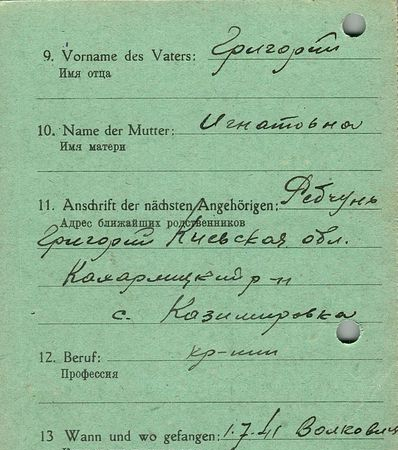 9. Vorname des Vaters: Григорий
Имя отца
10. Name der Mutter: Игнатовна
Имя матери
11. Anschrift der nächsten Angehörigen: Ребчунь
Адрес ближайших родственников
Григорий Киевская обл.
Кахарлицкий р-н
с. Казимировка
12. Beruf: кр-нин
Профессия
13 Wann und wo gefangen: 1.7.41 Волковыя